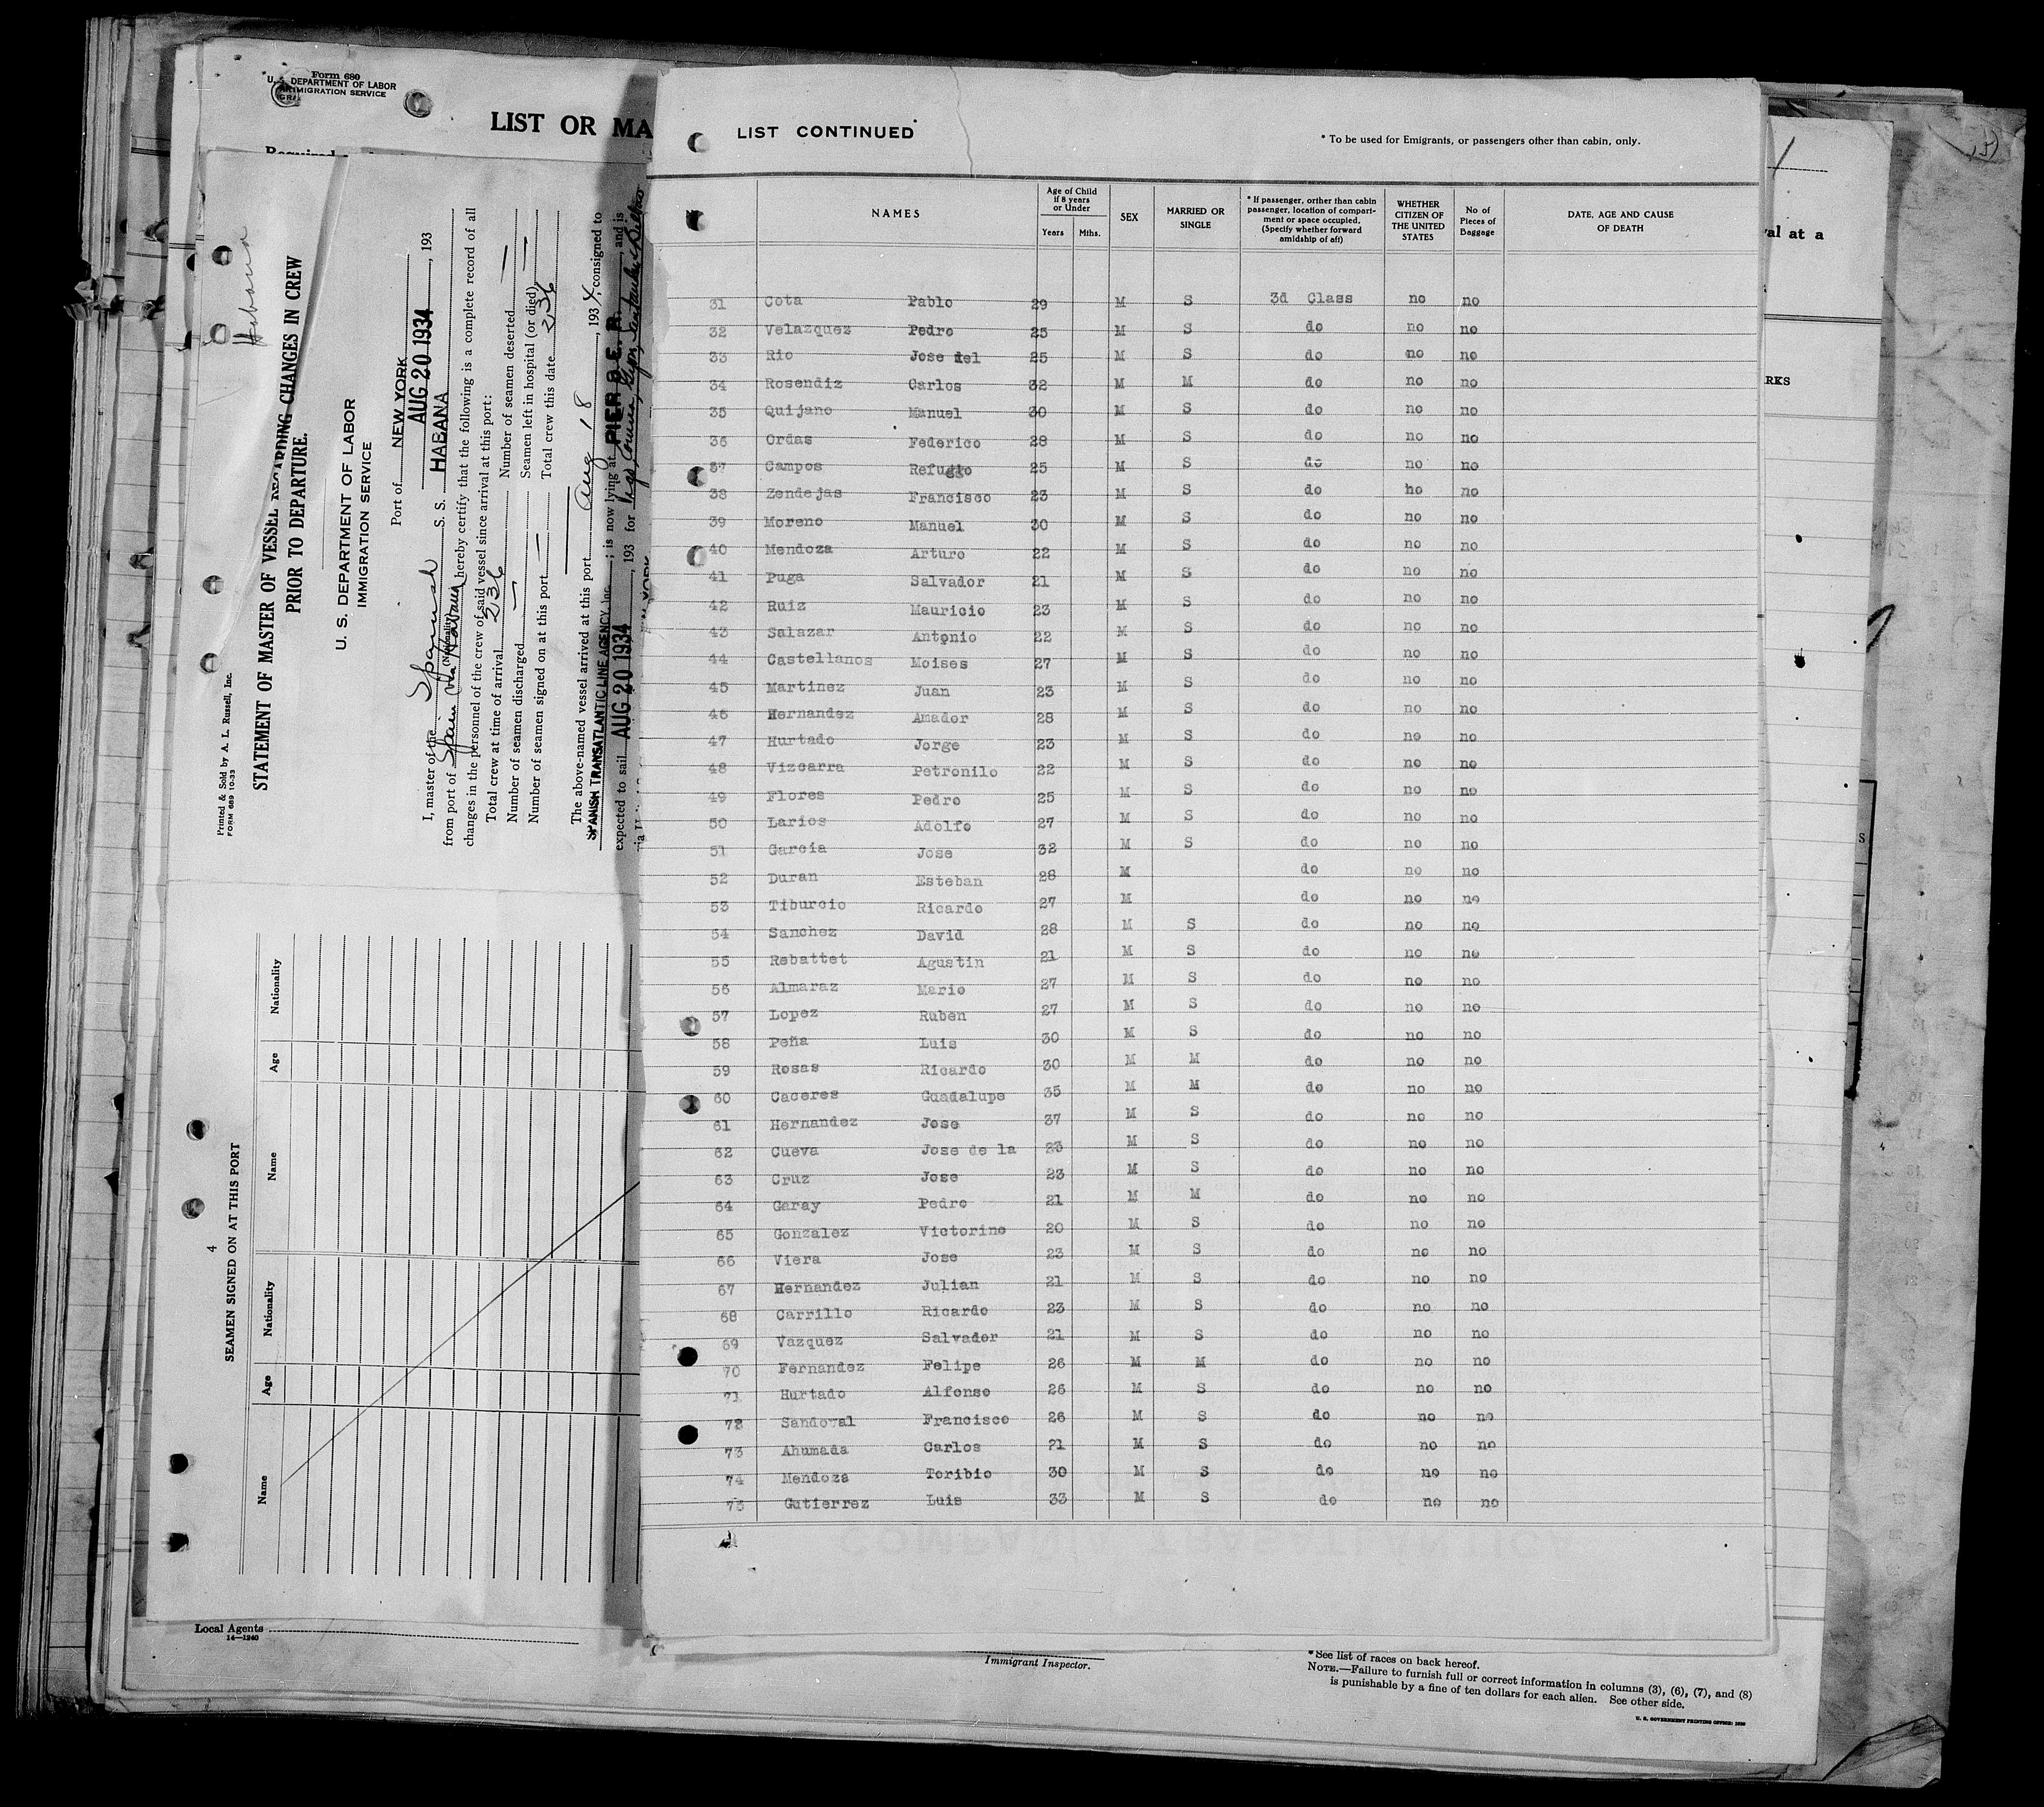 Form 680
U. S. DEPARTMENT OF LABOR
IMMIGRATION SERVICE
LIST OR MA
Habana
Printed & Sold by A. L. Russell, Inc.
FORM 689 10-33
STATEMENT OF MASTER OF VESSEL REGARDING CHANGES IN CREW
PRIOR TO DEPARTURE.
U. S. DEPARTMENT OF LABOR
IMMIGRATION SERVICE
Port of NEW YORK
AUG 20 1934, 193
I, master of the Spanish S. S. HABANA
(Nationality)
from port of Spain via Havana hereby certify that the following is a complete record of all
changes in the personnel of the crew of said vessel since arrival at this port:
Total crew at time of arrival 236 Number of seamen deserted —
Number of seamen discharged — Seamen left in hospital (or died) —
Number of seamen signed on at this port — Total crew this date 236
The above-named vessel arrived at this port Aug 18, 1934, consigned to
SPANISH TRANSATLANTIC LINE AGENCY, Inc.; is now lying at PIER 8. E. R., and is
expected to sail AUG 20 1934, 193 for Vigo, Coruna, Gijon, Santander, Bilbao
4
SEAMEN SIGNED ON AT THIS PORT
Name Age Nationality Name Age Nationality
Local Agents
14—1240
LIST CONTINUED
* To be used for Emigrants, or passengers other than cabin, only.
NAMES
Age of Child if 8 years or Under
Years Mths.
SEX
MARRIED OR SINGLE
* If passenger, orther than cabin passenger, location of compartment or space occupied, (Specify whether forward amidship of aft)
WHETHER CITIZEN OF THE UNITED STATES
No of Pieces of Baggage
DATE, AGE AND CAUSE OF DEATH
31 Cota Pablo 29 M S 3d Class no no
32 Velazquez Pedro 25 M S do no no
33 Rio Jose del 25 M S do no no
34 Rosendiz Carlos 32 M M do no no
35 Quijano Manuel 30 M S do no no
36 Ordas Federico 28 M S do no no
37 Campos Refugio 25 M S do no no
38 Zendejas Francisco 23 M S do ho no
39 Moreno Manuel 30 M S do no no
40 Mendoza Arturo 22 M S do no no
41 Puga Salvador 21 M S do no no
42 Ruiz Mauricio 23 M S do no no
43 Salazar Antonio 22 M S do no no
44 Castellanos Moises 27 M S do no no
45 Martinez Juan 23 M S do no no
46 Hernandez Amador 28 M S do no no
47 Hurtado Jorge 23 M S do no no
48 Vizcarra Petronilo 22 M S do no no
49 Flores Pedro 25 M S do no no
50 Larios Adolfo 27 M S do no no
51 Garcia Jose 32 M S do no no
52 Duran Esteban 28 M do no no
53 Tiburcio Ricardo 27 M do no no
54 Sanchez David 28 M S do no no
55 Rebattet Agustin 21 M S do no no
56 Almaraz Mario 27 M S do no no
57 Lopez Ruben 27 M S do no no
58 Peña Luis 30 M S do no no
59 Rosas Ricardo 30 M M do no no
60 Caceres Guadalupe 35 M M do no no
61 Hernandez Jose 37 M S do no no
62 Cueva Jose de la 23 M S do no no
63 Cruz Jose 23 M S do no no
64 Garay Pedro 21 M M do no no
65 Gonzalez Victorino 20 M S do no no
66 Viera Jose 23 M S do no no
67 Hernandez Julian 21 M S do no no
68 Carrillo Ricardo 23 M S do no no
69 Vazquez Salvador 21 M S do no no
70 Fernandez Felipe 26 M M do no no
71 Hurtado Alfonso 26 M S do no no
72 Sandoval Francisco 26 M S do no no
73 Ahumada Carlos 21 M S do no no
74 Mendoza Toribio 30 M S do no no
75 Gutierrez Luis 33 M S do no no
Immigrant Inspector.
* See list of races on back hereof.
NOTE.—Failure to furnish full or correct information in columns (3), (6), (7), and (8)
is punishable by a fine of ten dollars for each alien. See other side.
U. S. GOVERNMENT PRINTING OFFICE: 1930
al at a
RKS